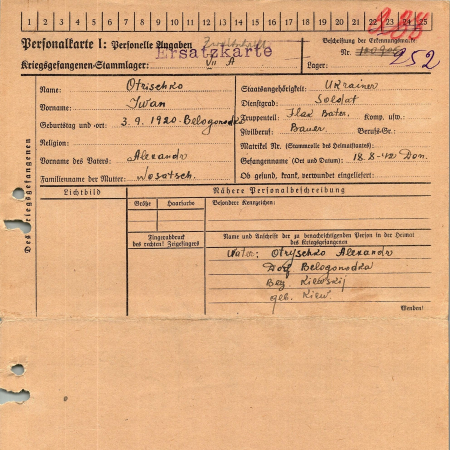 1 2 3 4 5 6 7 8 9 10 11 12 13 14 15 16 17 18 19 20 21 22 23 24 25
Personalkarte I: Personelle Angaben
Ersatzkarte
Beschriftung der Erkennungsmarke
Nr.
252
Kriegsgefangenen-Stammlager: VII A
Lager:
Des Kriegsgefangenen
Name: Otrischko
Vorname: Iwan
Geburtstag und -ort: 3.9.1920 Belogorodka
Religion:
Vorname des Vaters: Alexandr
Familienname der Mutter: Wosatsch.
Staatsangehörigkeit: Ukrainer
Dienstgrad: Soldat
Truppenteil: Flak Bater. Komp. usw.:
Zivilberuf: Bauer Berufs-Gr.:
Matrikel Nr. (Stammrolle des Heimatstaates):
Gefangennahme (Ort und Datum): 18.8.42 Don.
Ob gesund, krank, verwundet eingeliefert:
Lichtbild
Nähere Personalbeschreibung
Größe
Haarfarbe
Besondere Kennzeichen:
Fingerabdruck
des rechten! Zeigefingers
Name und Anschrift der zu benachrichtigenden Person in der Heimat
des Kriegsgefangenen
Vater: Otryschko Alexandr
Dorf Belogorodka
Bez Kiewskij
geb. Kiew
Wenden!